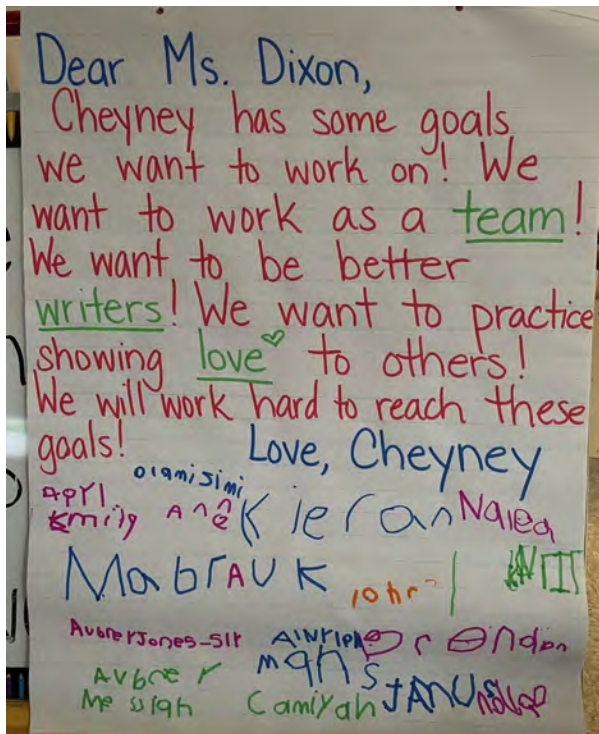 Dear Ms. Dixon,
Cheyney has some goals
we want to work on! We
want to work as a team!
We want to be better
writers! We want to practice
showing love to others!
We will work hard to reach these
goals! Love, Cheyney
olamisimi
APrl
Emily Ane Kieran Nalea
MabrAuk
AubrerJones-SIr
mans
Aubrer JANUS
Camiyah